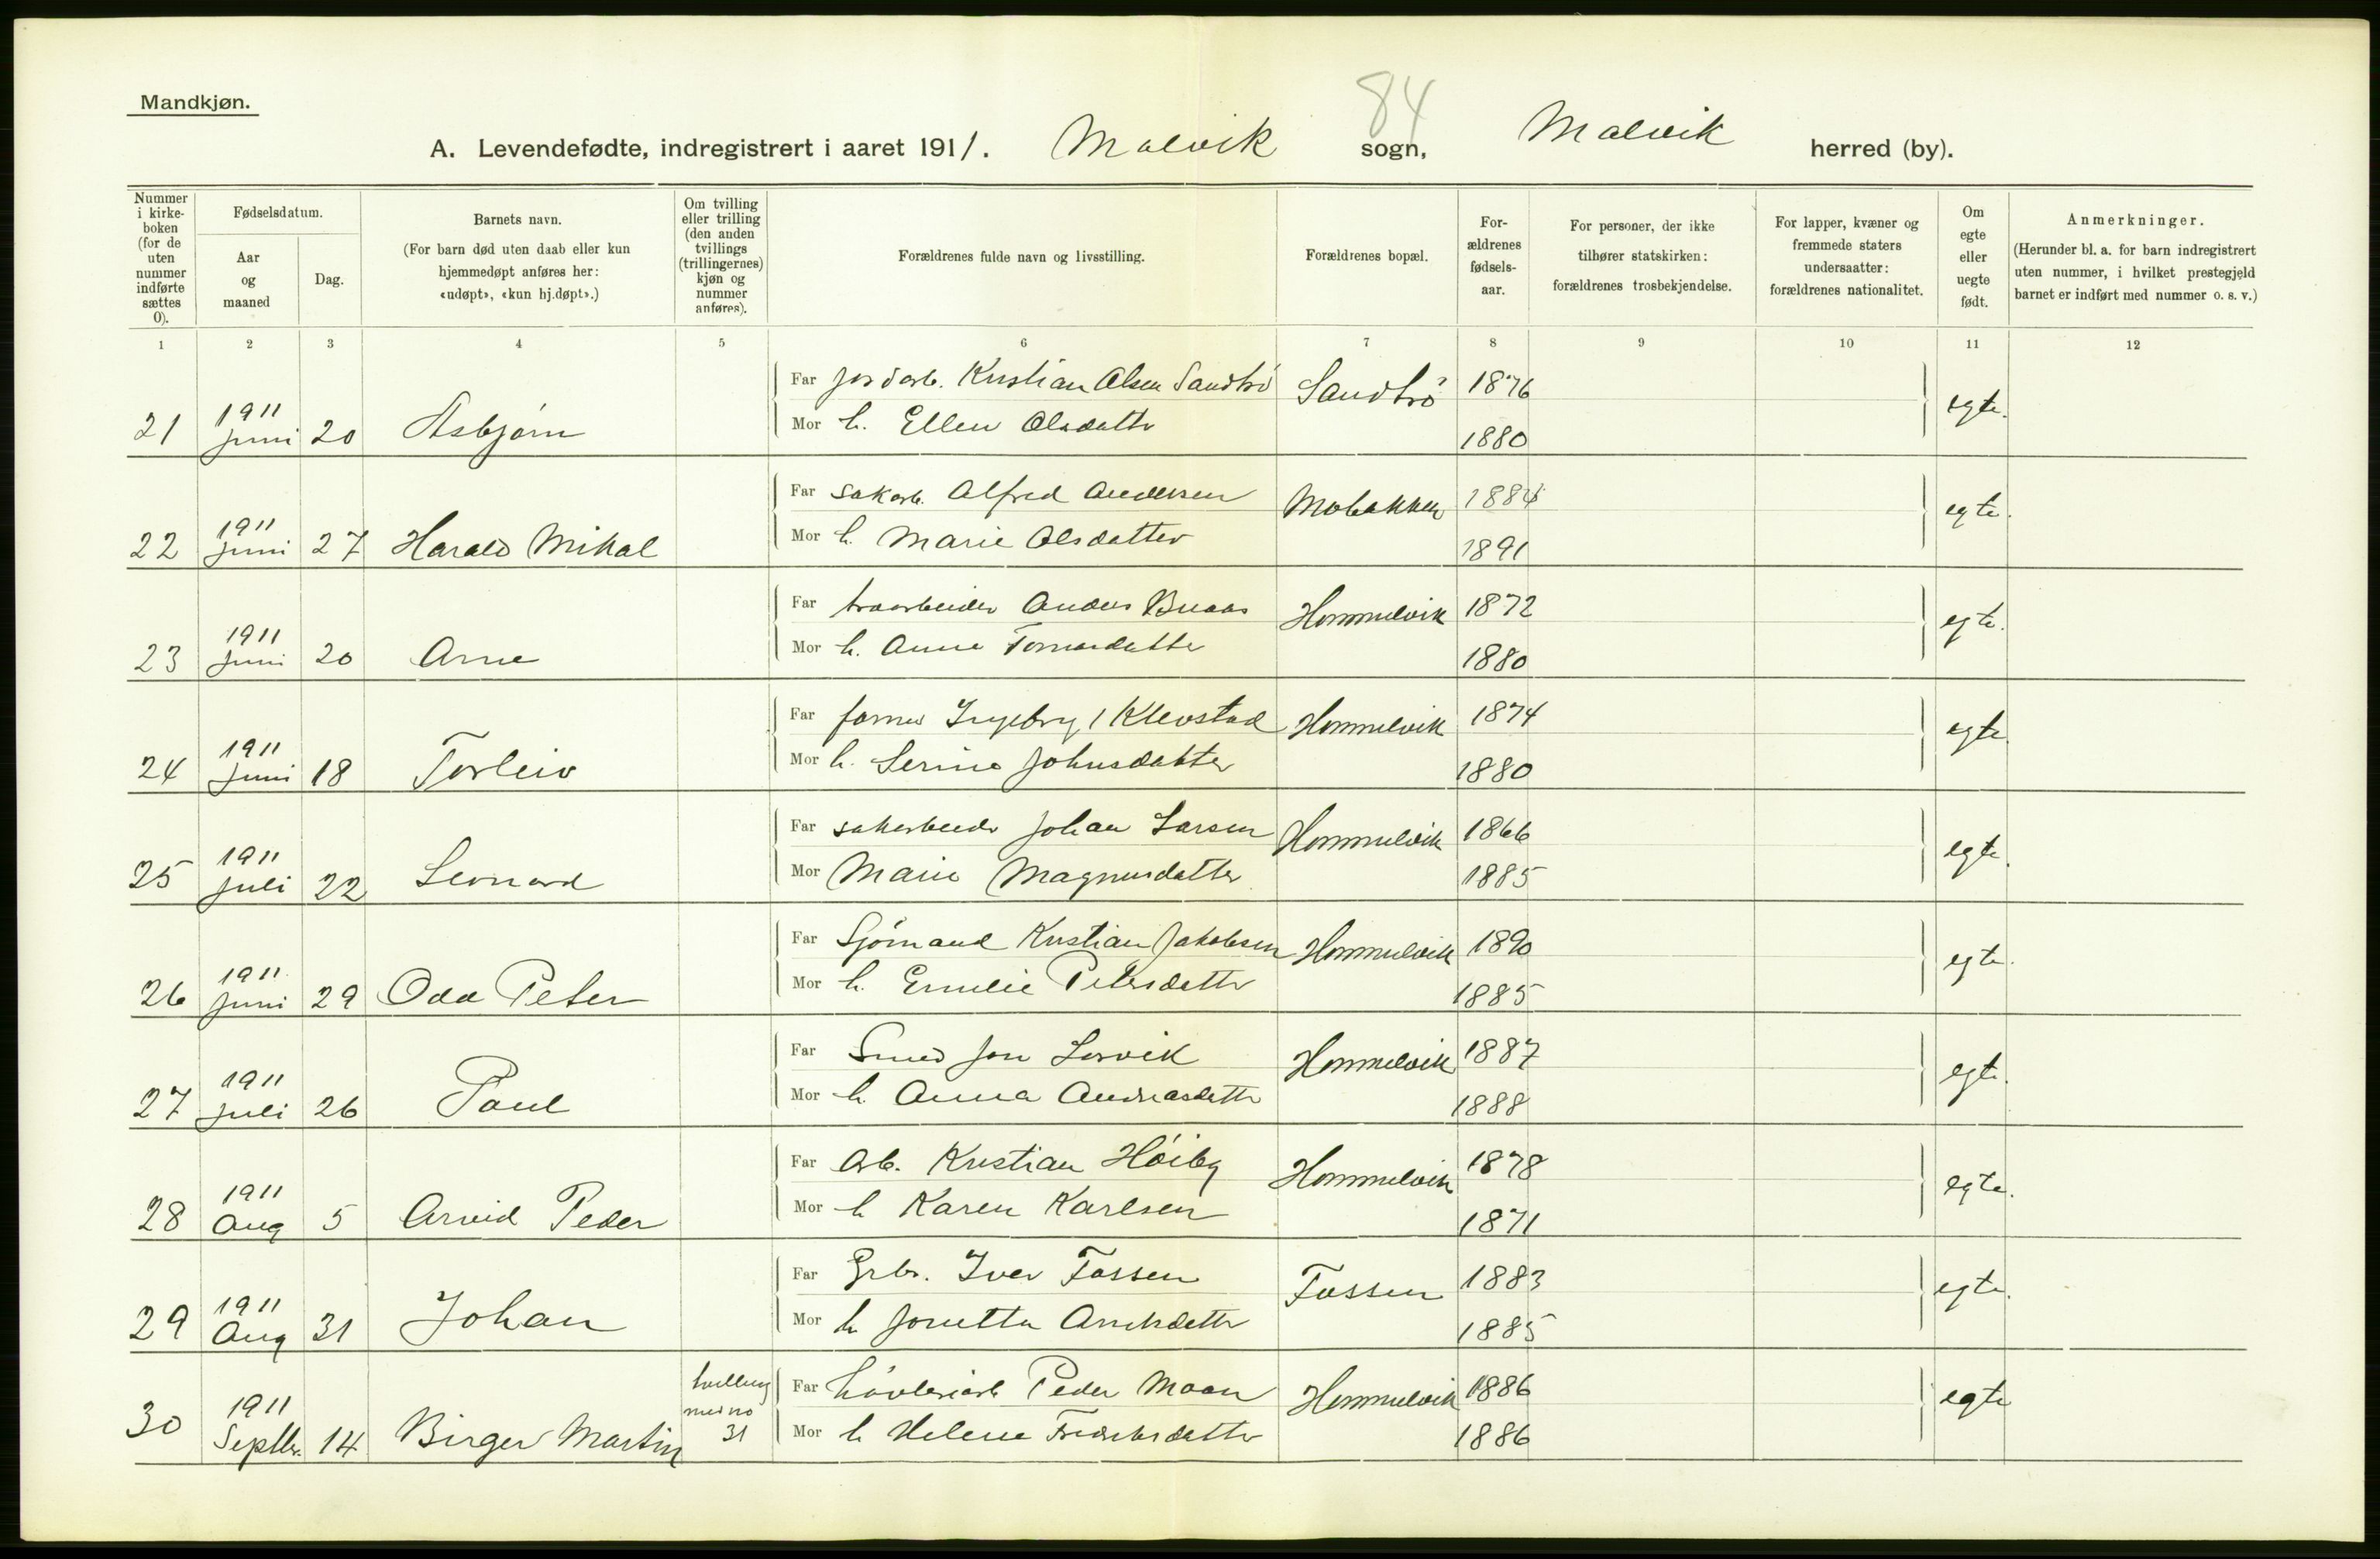 84
Mandkjøn.
A. Levendefødte, indregistrert i aaret 1911. Malvik sogn, Malvik herred (by).
Nummer i kirke-boken (for de uten nummer indførte sættes 0).
Fødselsdatum.
Aar og maaned
Dag.
Barnets navn.
(For barn død uten daab eller kun hjemmedøpt anføres her: «udøpt», «kun hj.døpt».)
Om tvilling eller trilling (den anden tvillings (trillingernes) kjøn og nummer anføres).
Forældrenes fulde navn og livsstilling.
Forældrenes bopæl.
For-ældrenes fødsels-aar.
For personer, der ikke tilhører statskirken: forældrenes trosbekjendelse.
For lapper, kvæner og fremmede staters undersaatter: forældrenes nationalitet.
Om egte eller uegte født.
Anmerkninger.
(Herunder bl. a. for barn indregistrert uten nummer, i hvilket prestegjeld barnet er indført med nummer o. s. v.)
1 2 3 4 5 6 7 8 9 10 11 12
21 1911 juni 20 Asbjørn Far jordarb. Kristian Olsen Sandtrö Sandtrö 1876 egte.
Mor h. Ellen Olsdatter 1880
22 1911 juni 27 Harald Mikal Far sakarb. Alfred Andersen Mobakken 1884 egte.
Mor h. Marie Olsdatter 1891
23 1911 juni 20 Arne Far Anders Buaas Hommelvik 1872 egte.
Mor h. Anne 1880
24 1911 juni 18 Torleiv Far former Klevstad Hommelvik 1874 egte.
Mor h. Serine Johnsdatter 1880
25 1911 juli 22 Leonard Far Johan Larsen Hommelvik 1866 egte.
Mor Marie Magnusdatter 1885
26 1911 juni 29 Odd Peter Far Sjömand Kristian Jakobsen Hommelvik 1890 egte.
Mor h. Emelie Petersdatter 1885
27 1911 juli 26 Paul Far Smed Jon Hommelvik 1887 egte.
Mor h. Anna Andreasdatter 1888
28 1911 Aug 5 Arvid Peder Far Arb. Kristian Höiby Hommelvik 1878 egte.
Mor h Karen Karlsen 1871
29 1911 Aug 31 Johan Far Grbr. Iver Fossen Fossen 1883 egte.
Mor h 1885
30 1911 Septbr. 14 Birger Martin tvilling med no 31 Far Peder Moan Hommelvik 1886 egte
Mor h Helene Fredriksdatter 1886